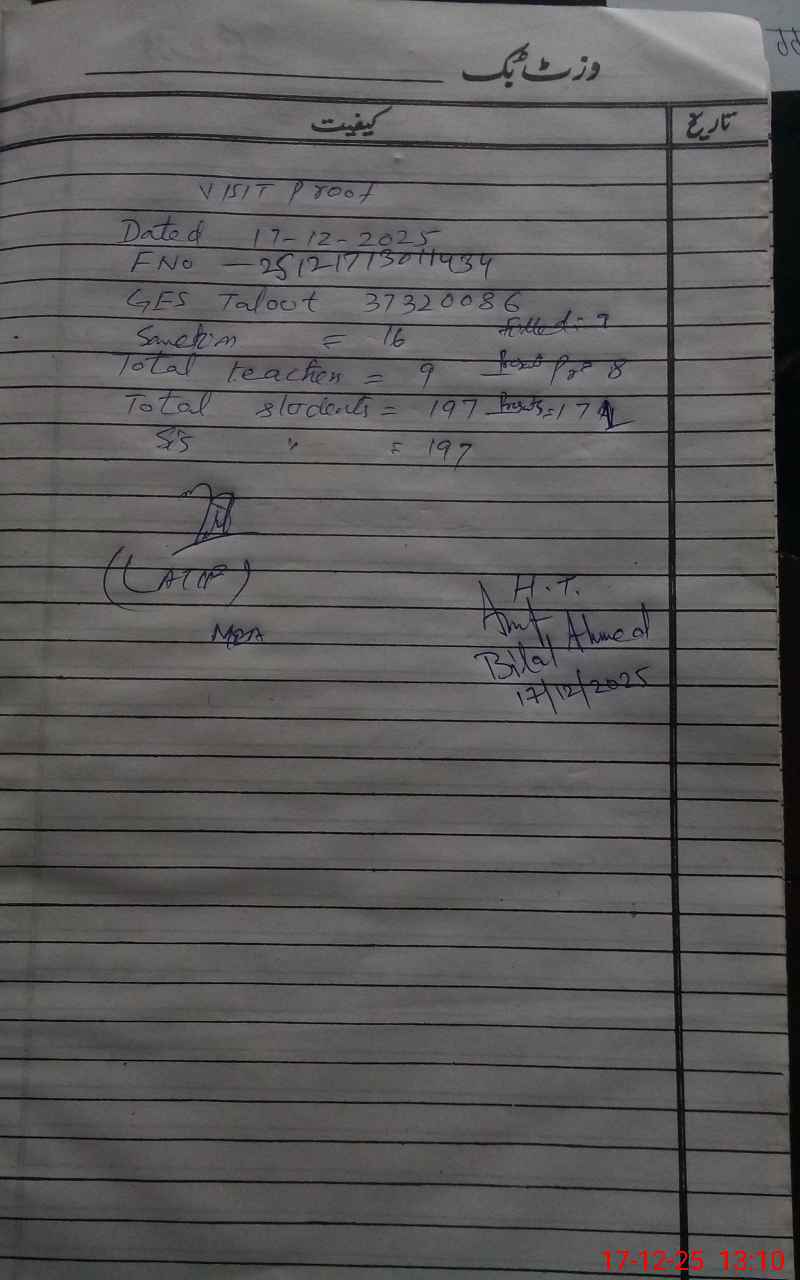 وزٹ بک
کیفیت تاریخ
VISIT Proof
Dated 17-12-2025
F No — 25121713011434
GES Talout 37320086
Sanction = 16 filled = 9
Total teachers = 9 Pre = 8
Total students = 197 Presents = 17
SIS " = 197
(ATIF)
MEA
H.T.
Bilal Ahmed
17/12/2025
17-12-25 13:10